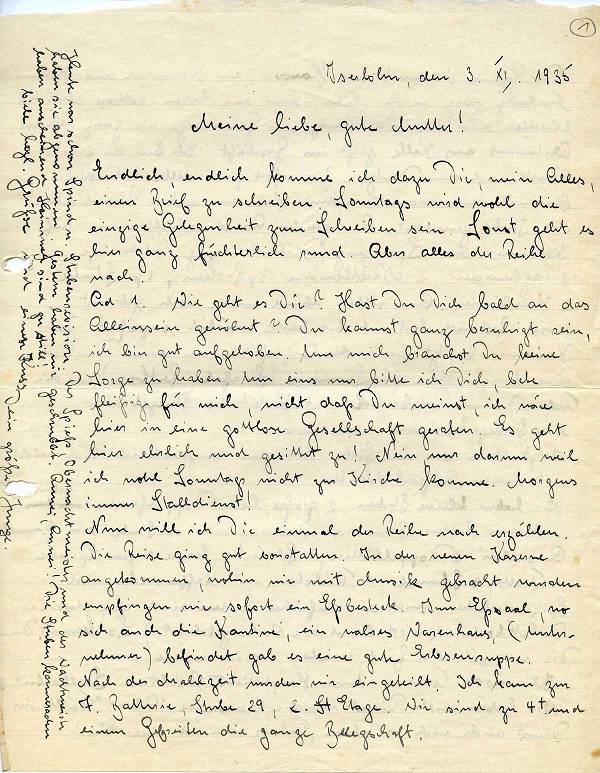 1
Iserlohn, den 3. XI. 1935
Meine liebe, gute Mutter!
Endlich, endlich komme ich dazu Dir, mein Alles,
einen Brief zu schreiben. Sonntags wird wohl die
einzige Gelegenheit zum Schreiben sein. Sonst geht es
hier ganz fürchterlich rund. Aber alles der Reihe
nach.
Ad 1. Wie geht es Dir? Hast Du Dich bald an das
Alleinsein gewöhnt? Du kannst ganz beruhigt sein,
ich bin gut aufgehoben. Um mich brauchst Du keine
Sorge zu haben. Um eins nur bitte ich Dich, bete
fleißig für mich, nicht daß Du meinst, ich wäre
hier in eine gottlose Gesellschaft geraten. Es geht
hier ehrlich und gesittet zu! Nein nur darum weil
ich wohl Sonntags nicht zur Kirche komme. Morgens
immer Stalldienst!
Nun will ich Dir einmal der Reihe nach erzählen.
Die Reise ging gut vonstatten. In der neuen Kaserne
angekommen, wohin wir mit Musik gebracht wurden
empfingen wir sofort ein Eßbesteck. Im Eßsaal, wo
sich auch die Kantine, ein wahres Warenhaus, (Unter-
nehmer) befindet gab es eine gute Erbsensuppe.
Nach der Mahlzeit wurden wir eingeteilt. Ich kam zur
7. Batterie, Stube 29, 2. Etage. Wir sind zu 4t und
einem Gefreiten die ganze Belegschaft.
Heute war schon Spind u. Stubenrevision. Der Spieß Oberwachtmeister und der Wachtmeister
haben sie abgenommen. Gestern haben wir geschrubbt. Immer, immer! Die Stubenkameraden
haben anscheinend Heimweh sind so still!
Viele herzl. Grüße und einen Kuss Dein großer Junge.